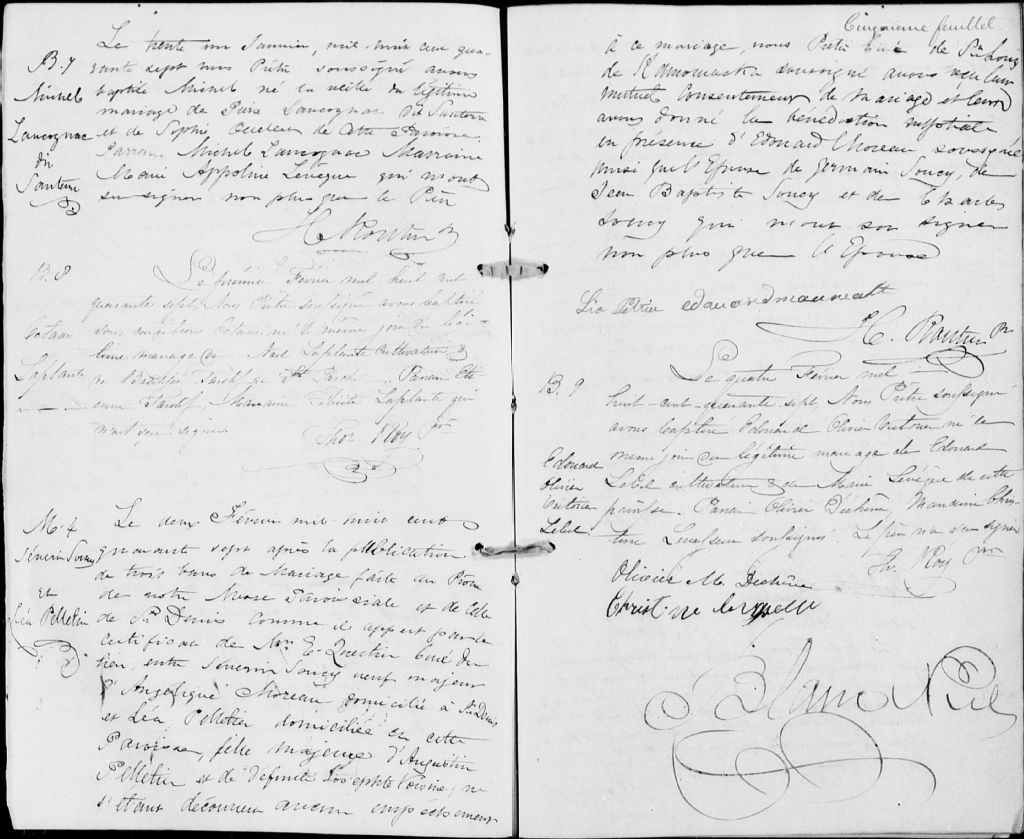 B. 7
Michel
Lancognac
dit
Santerre
Le trente un Janvier, mil-huit cent qua-
rante sept nous Prêtre soussigné avons
baptisé Michel né la veille du légitime
mariage de Lancognac dit Santerre
et de Sophie de cette Paroisse
Parrain Michel Lancognac Marraine
Marie Appoline Levêque qui n'ont
su signer non plus que le Père
H. Routier Ptre
B. 8
Octave
Laplante
Le premier Février mil huit cent
quarante sept, Nous Prêtre soussigné avons baptisé
sous condition Octave né le même jour du légi-
time mariage de Noël Laplante cultivateur &
de Tardif de St Paschal. Parrain Eti
enne Tardif, Marraine Felicité Laplante qui
n'ont su signer
Thos Roy Ptre
M. 4
Séverin Soucy
et
Léa Pelletier
Le deux Février mil-huit cent
quarante sept après la publication
de trois bans de Mariage faite au Prône
de notre Messe Paroissiale et de celle
de St Denis comme il appert par le
certificat de Mr E. Quertier Curé du
lieu, entre Séverin Soucy veuf majeur
d'Angelique Moreau domicilié à St Denis
et Léa Pelletier domiciliée en cette
Paroisse, fille majeure d'Augustin
Pelletier et de Défunte Josephte Voisine; ne
s'étant découvert aucun empêchement
Cinquième feuillet
à ce mariage, nous Prêtre Curé de St Louis
de Kamouraska soussigné avons reçu leur
mutuel consentement de mariage et leur
avons donné la bénédiction nuptiale
en présence d'Edouard Moreau, soussigné
ainsi que l'Epouse de Germain Soucy, de
Jean Baptiste Soucy et de Charles
Soucy qui n'ont su signer
non plus que l'Epoux
Léa Peltier edouard
H. Routier Ptre
B. 9
Edouard
Olivier
Lebel
Le quatre Février mil
huit-cent-quarante-sept, Nous Prêtre soussigné
avons baptisé Edouard Olivier né le
même jour du légitime mariage de Edouard
Lebel cultivateur & de Marie Levêque de cette
paroisse. Parrain Olivier Dechêne, Marraine Chris-
tine soussignés. Le père n'a su signer
Ths. Roy Ptre
Olivier M. Dechêne